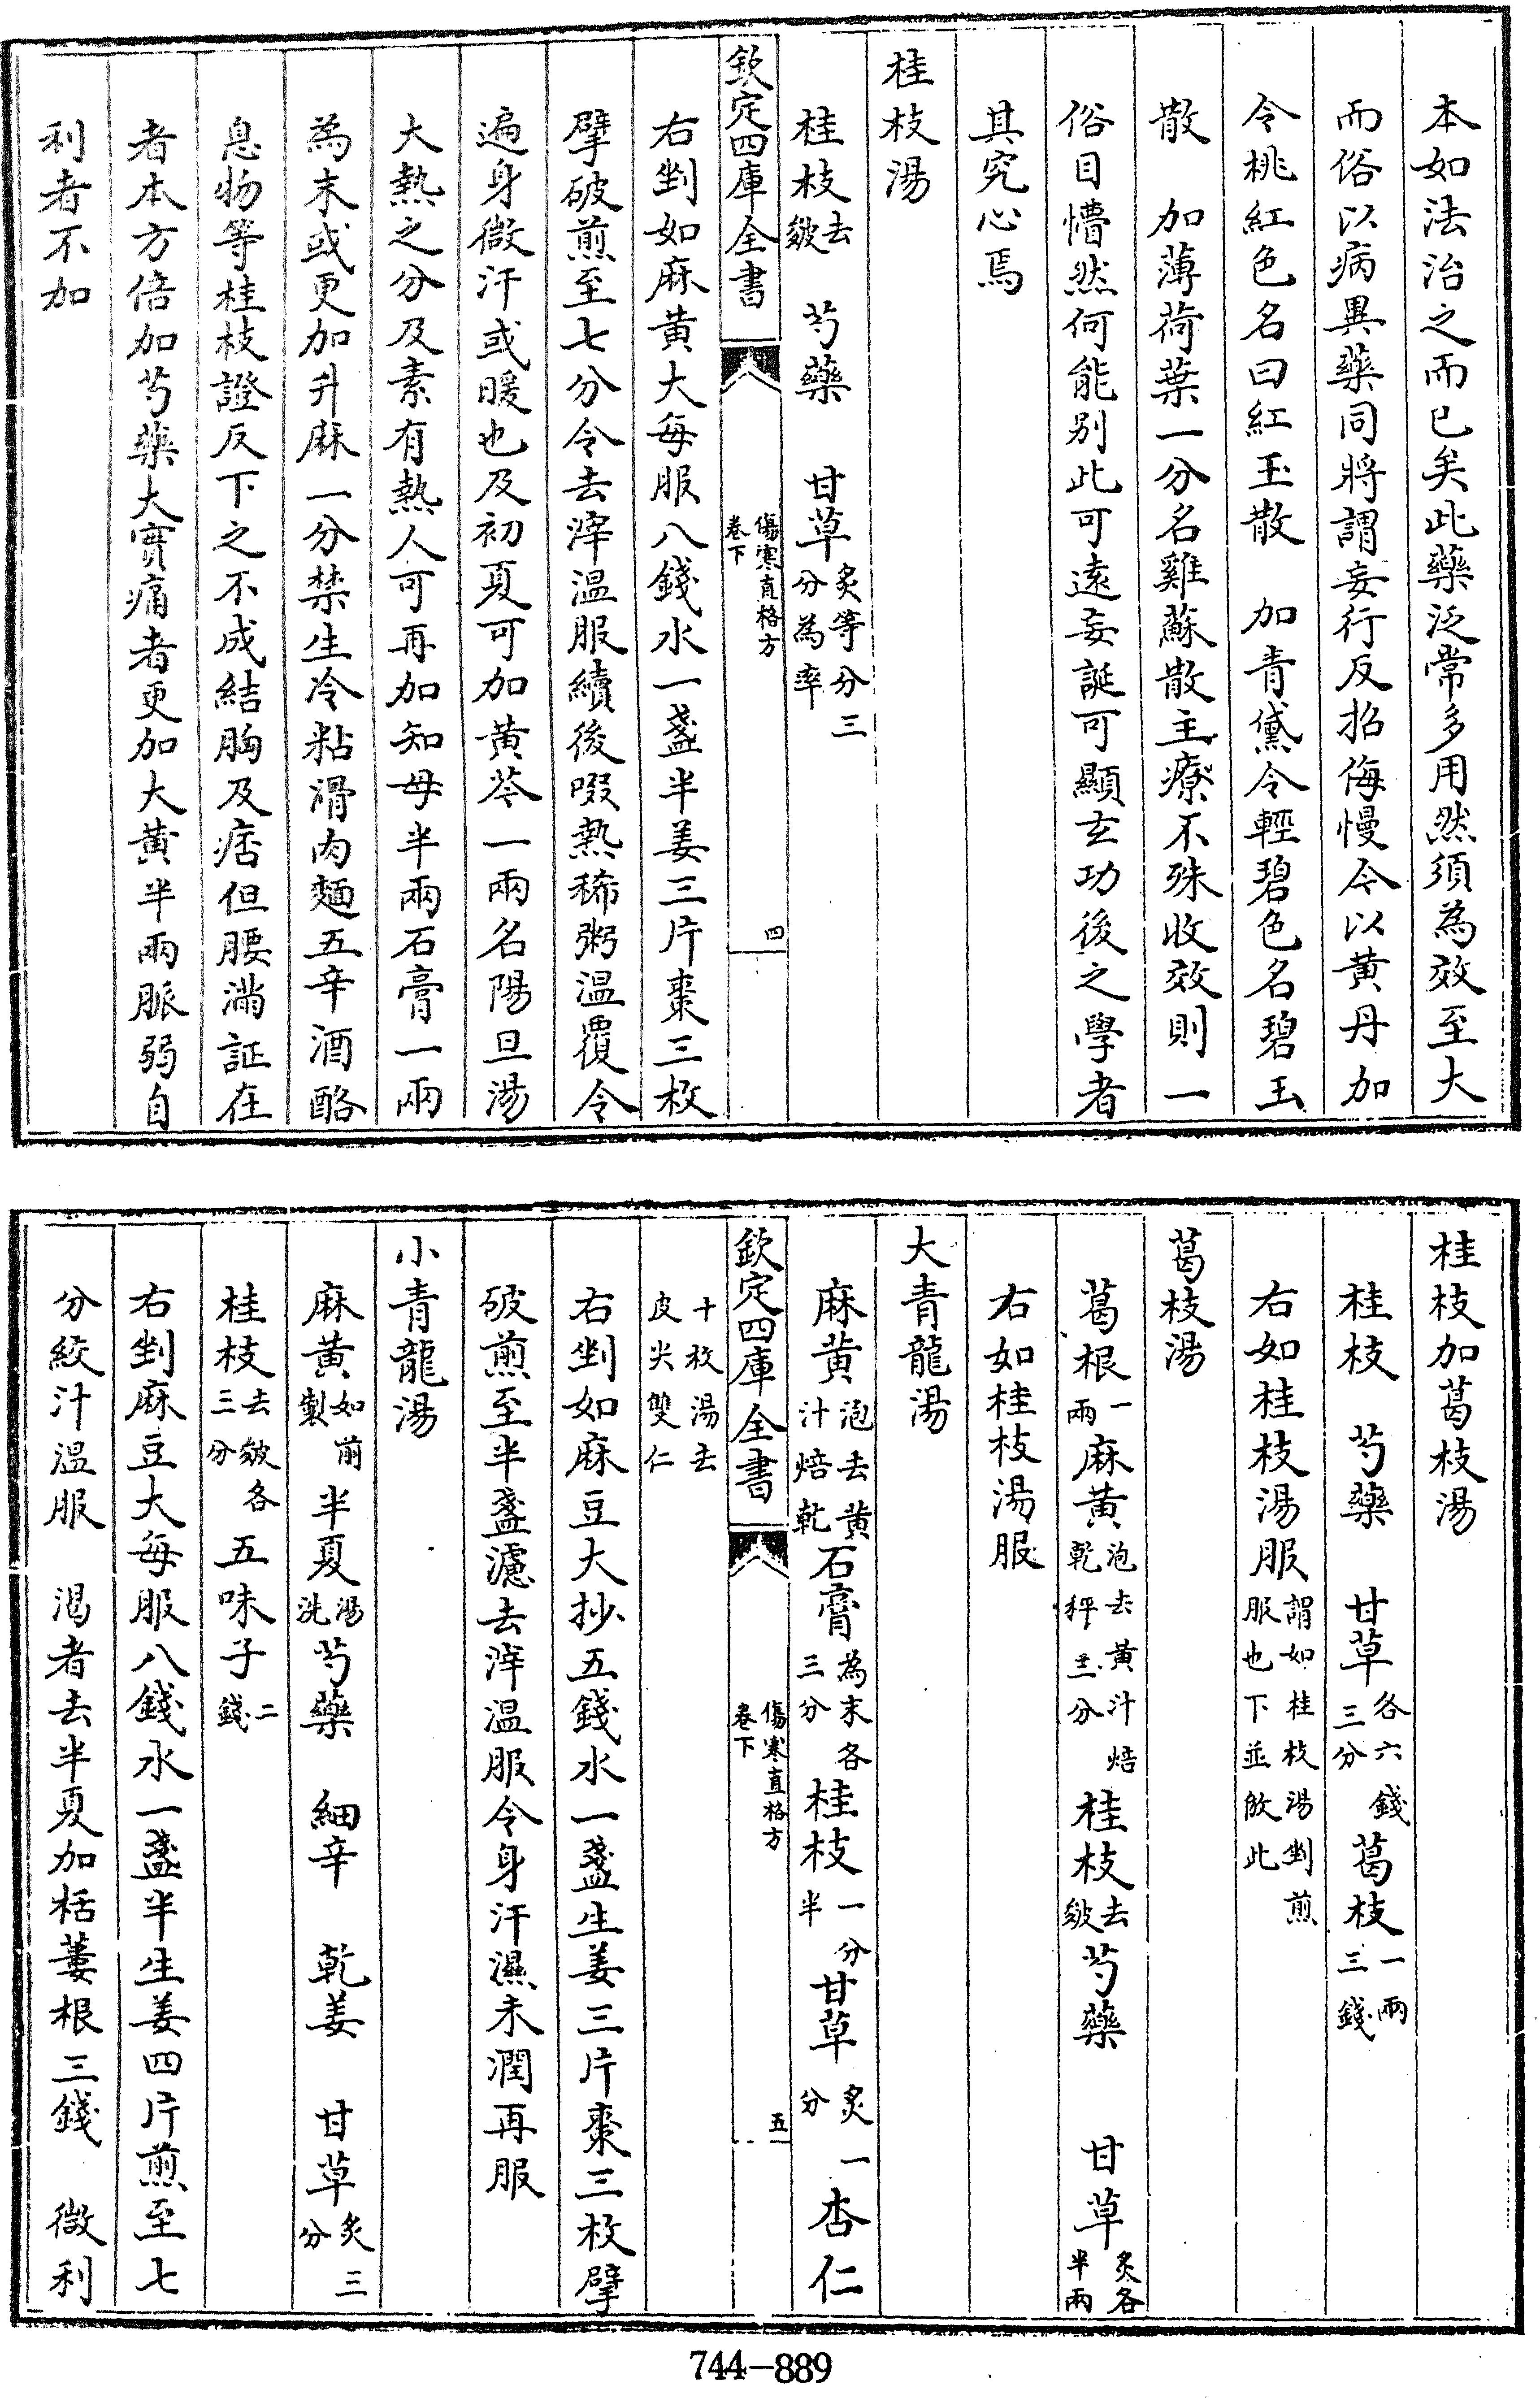 本如法治之而已矣此藥泛常多用然須為效至大
而俗以病異藥同將謂妄行反招侮慢今以黄丹加
令桃紅色名曰紅玉散　加青黛令輕碧色名碧玉
散　加薄荷葉一分名雞蘇散主療不殊收效則一
俗目懵然何能别此可遠妄誕可顯玄功後之學者
其究心焉
桂枝湯
桂枝去皴　芍藥　甘草炙等分三分為率
欽定四庫全書　傷寒直格方卷下　四
右剉如麻黄大每服八錢水一盞半姜三片棗三枚
擘破煎至七分令去滓温服續後啜熱稀粥温覆令
遍身微汗或暖也及初夏可加黄芩一兩名陽旦湯
大熱之分及素有熱人可再加知母半兩石膏一兩
為末或更加升麻一分禁生冷粘滑肉麵五辛酒酪
息物等桂枝證反下之不成結胸及痞但腰滿証在
者本方倍加芍藥大實痛者更加大黄半兩脈弱自
利者不加
桂枝加葛枝湯
桂枝　芍藥　甘草各六錢三分葛枝一兩三錢
右如桂枝湯服謂如桂枝湯剉煎服也下並倣此
葛枝湯
葛根一兩麻黄泡去黄汁焙乾秤三分桂枝去皴芍藥　甘草炙各半兩
右如桂枝湯服
大青龍湯
麻黄泡去黄汁焙乾石膏為末各三分桂枝一分半甘草炙一分杏仁
欽定四庫全書　傷寒直格方卷下　五
十枚湯去皮尖雙仁
右剉如麻豆大抄五錢水一盞生姜三片棗三枚擘
破煎至半盞濾去滓温服令身汗濕未潤再服
小青龍湯
麻黄如前製半夏湯洗芍藥　細辛　乾姜　甘草炙三分
桂枝去皴各三分五味子二錢
右剉麻豆大每服八錢水一盞半生姜四片煎至七
分絞汁温服　渴者去半夏加栝蔞根三錢　微利
744-889